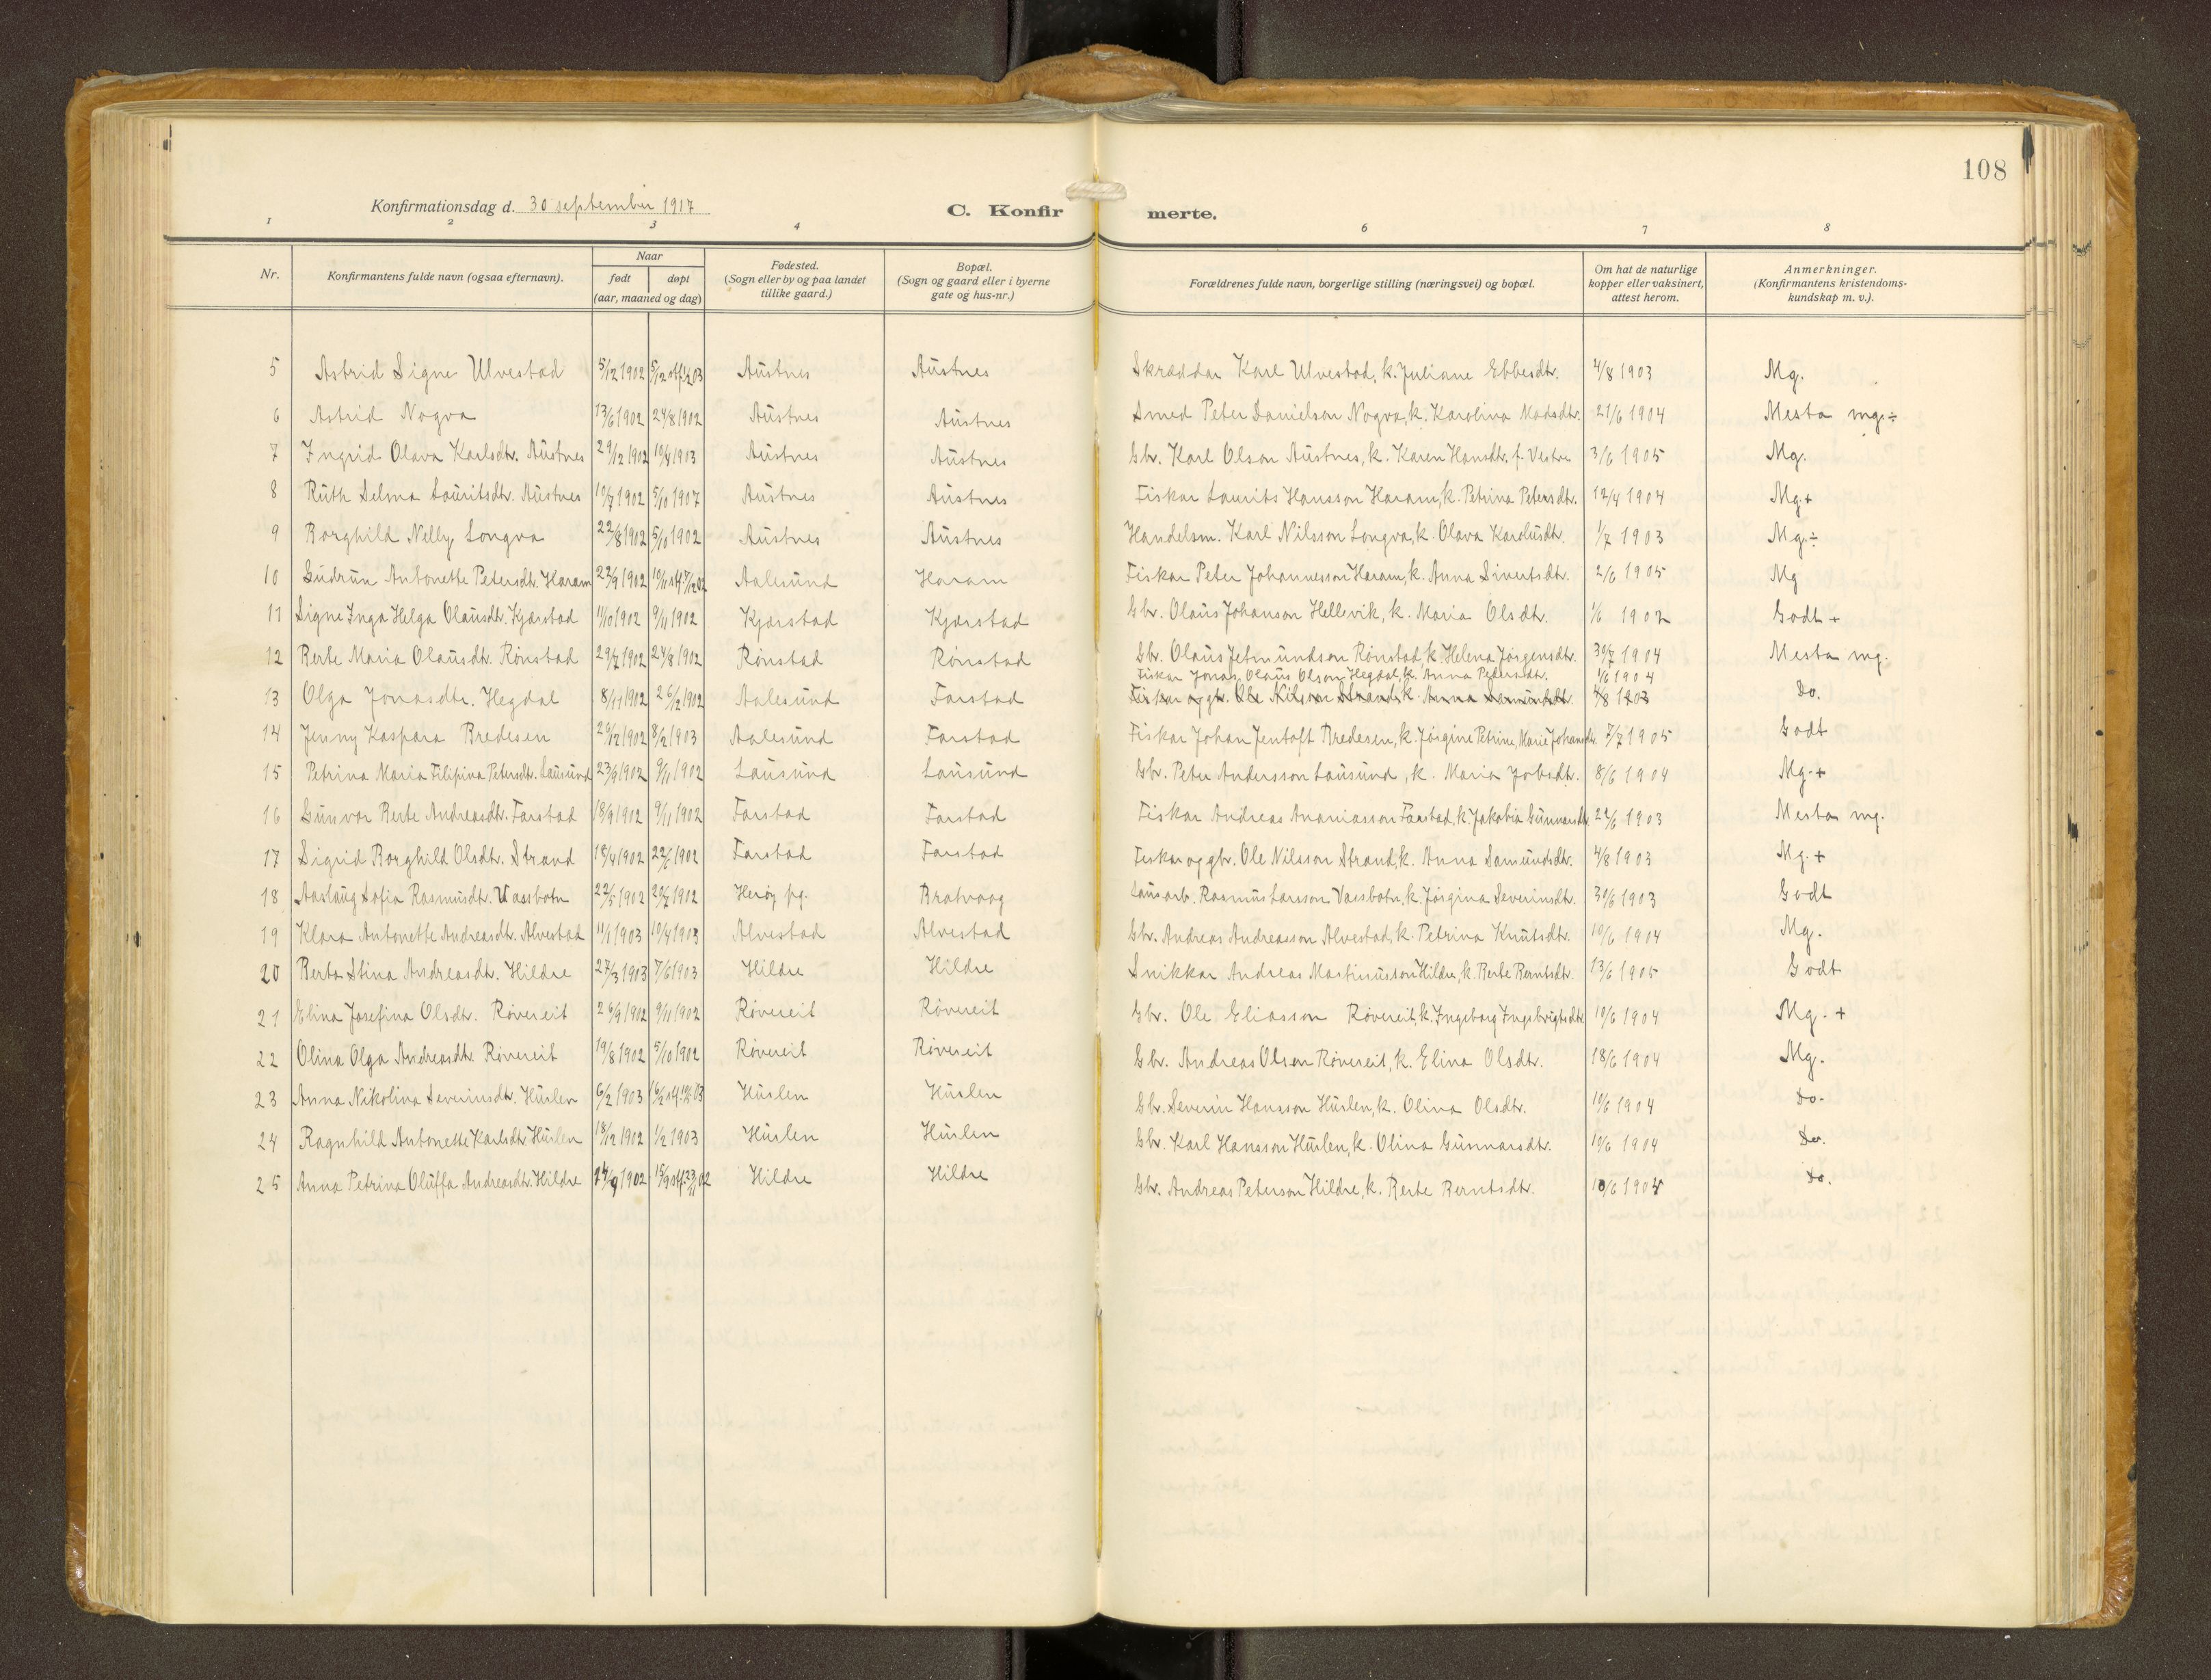 108
Konfirmationsdag d. 30 september 1917
C. Konfirmerte.
1 2 3 4 6 7 8
Nr. Konfirmantens fulde navn (ogsaa efternavn). Naar født døpt (aar, maaned og dag) Fødested. (Sogn eller by og paa landet tillike gaard.) Bopæl. (Sogn og gaard eller i byerne gate og hus-nr.) Forældrenes fulde navn, borgerlige stilling (næringsvei) og bopæl. Om hat de naturlige kopper eller vaksinert, attest herom. Anmerkninger. (Konfirmantens kristendoms-kundskap m. v.).
5 Astrid Signe Ulvestad 5/12 1902 5/12 stf. 1/2 03 Austnes Austnes Skræddar Karl Ulvestad, k. Juliane Ebbesdtr. 4/8 1903 Mg.
6 Astrid Nogva 13/6 1902 24/8 1902 Austnes Austnes Smed Peter Danielson Nogva, k. Karolina Madsdtr. 21/6 1904 Mesta mg. ÷
7 Ingrid Olava Karlsdtr. Austnes 29/12 1902 10/4 1903 Austnes Austnes Gbr. Karl Olson Austnes, k. Karen Hansdtr. f. Vestre 3/6 1905 Mg.
8 Ruth Selma Lauritsdtr. Austnes 10/7 1902 5/10 1907 Austnes Austnes Fiskar Laurits Hansson Haram, k. Petrina Petersdtr. 12/4 1904 Mg. +
9 Borghild Nelly Longva 22/8 1902 5/10 1902 Austnes Austnes Handelsm. Karl Nilsson Longva, k. Olava Karolusdtr. 1/7 1903 Mg. ÷
10 Gudrun Antonette Petersdtr. Haram 22/9 1902 10/11 stf. Aalesund Haram Fiskar Peter Johannesson Haram, k. Anna Sivertsdtr. 2/6 1905 Mg
11 Signe Inga Helga Olausdtr. Kjærstad 11/10 1902 9/11 1902 Kjærstad Kjærstad Gbr. Olaus Johanson Hellevik, k. Maria Olsdtr. 1/6 1902 Godt +
12 Berte Maria Olausdtr. Rønstad 29/7 1902 24/8 1902 Rønstad Rønstad Gbr. Olaus Jetmundson Rønstad, k. Helena Jørgensdtr. 30/7 1904 Mesta mg.
Fiskar Jonas Olaus Olson Hegdal, k. Anna Pedersdtr. 1/6 1904
13 Olga Jonasdtr. Hegdal 8/11 1902 26/12 1902 Aalesund Farstad Fiskar og gbr. Ole Nilsson Strand, k. Anna Samundsdtr. 4/8 1903 Do.
14 Jenny Kaspara Bredesen 29/12 1902 8/2 1903 Aalesund Farstad Fiskar Johan Jentoft Bredesen, k. Jørgine Petrine, Marie Johansdtr. 7/7 1905 Godt
15 Petrina Maria Filipina Petersdtr. Lausund 23/9 1902 9/11 1902 Lausund Lausund Gbr. Peter Andersson Lausund, k. Maria Jobsdtr. 8/6 1904 Mg. +
16 Gunvor Berte Andreasdtr. Farstad 18/9 1902 9/11 1902 Farstad Farstad Fiskar Andreas Ananiasson Farstad, k. Jakobia Gunnarsdtr. 22/6 1903 Mesta mg.
17 Sigrid Borghild Olsdtr. Strand 18/4 1902 22/6 1902 Farstad Farstad Fiskar og gbr. Ole Nilsson Strand, k. Anna Samundsdtr. 4/8 1903 Mg. +
18 Aaslaug Sofia Rasmusdtr. Vassbotn 22/5 1902 20/7 1902 Herøy pg. Bratvaag Lausarb. Rasmus Larsson Vassbotn, k. Jørgina Severinsdtr. 30/6 1903 Godt
19 Klara Antonette Andreasdtr. Alvestad 11/1 1903 10/4 1903 Alvestad Alvestad Gbr. Andreas Andreasson Alvestad, k. Petrina Knutsdtr. 10/6 1904 Mg.
20 Berta Stina Andreasdtr. Hildre 27/3 1903 7/6 1903 Hildre Hildre Snikkar Andreas Martinusson Hildre, k. Berte Berntsdtr. 13/6 1905 Godt
21 Elina Josefina Olsdtr. Røvereit 26/9 1902 9/11 1902 Røvereit Røvereit Gbr. Ole Eliasson Røvereit, k. Ingeborg Ingebrigtsdtr. 10/6 1904 Mg. +
22 Olina Olga Andreasdtr. Røvereit 19/8 1902 5/10 1902 Røvereit Røvereit Gbr. Andreas Olson Røvereit, k. Elina Olsdtr. 18/6 1904 Mg.
23 Anna Nikolina Severinsdtr. Huslen 6/2 1903 16/2 stf. Huslen Huslen Gbr. Severin Hansson Huslen, k. Olina Olsdtr. 10/6 1904 Do.
24 Ragnhild Antonette Karlsdtr Huslen 18/12 1902 1/2 1903 Huslen Huslen Gbr. Karl Hansson Huslen, k. Olina Gunnarsdtr. 10/6 1904 Do.
25 Anna Petrina Oluffa Andreasdtr. Hildre 14/9 1902 15/9 stf. 23/11 02 Hildre Hildre Gbr. Andreas Peterson Hildre, k. Berte Berntsdtr. 10/6 1904 Do.